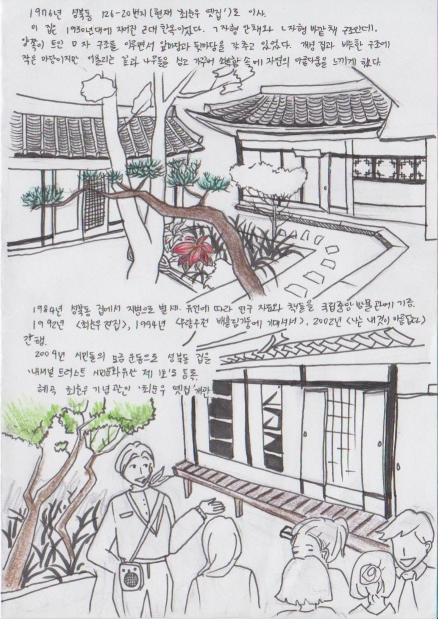 1976년 성북동 126-20번지 (현재 '최순우 옛집')로 이사.
이 집은 1930년대에 지어진 근대한옥이었다. ㄱ자형 안채와 ㄴ자형 바깥채 구조인데,
양쪽이 트인 ㅁ자 구조를 이루면서 앞마당과 뒷마당을 갖추고 있었다. 개성 집과 비슷한 구조에
작은 마당이지만 어울리는 꽃과 나무들을 심고 가꾸어 소박함 속에 자연의 아름다움을 느끼게 했다.
1984년 성북동 집에서 지병으로 별세. 유언에 따라 연구 자료와 책들을 국립중앙박물관에 기증.
1992년 <최순우 전집>, 1994년 <무량수전 배흘림기둥에 기대서서>, 2002년 <나는 내 것이 아름답다>
간행.
2009년 시민들의 모금 운동으로 성북동 집을
'내셔널 트러스트 시민문화유산 제 1호'로 등록.
혜곡 최순우 기념관인 '최순우 옛집' 개관